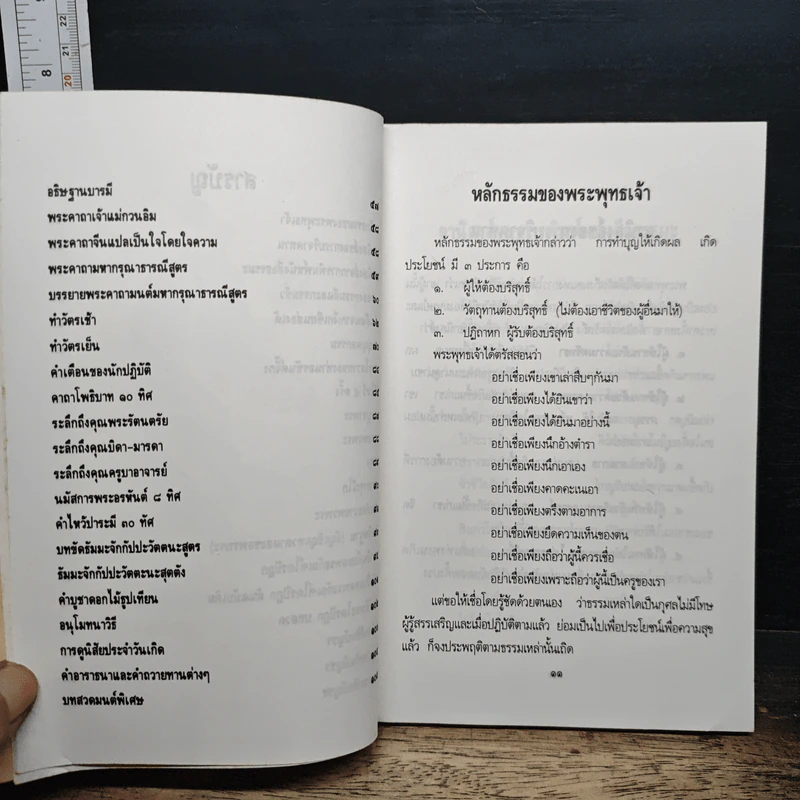 22
21
20
8
อธิษฐานบารมี ๕๗
พระคาถาเจ้าแม่กวนอิม ๕๘
พระคาถาจีนแปลเป็นใจโดยใจความ ๕๘
พระคาถามหากรุณาธารณีสูตร ๕๙
บรรยายพระคาถามนต์มหากรุณาธารณีสูตร ๖๐
ทำวัตรเช้า ๖๒
ทำวัตรเย็น
คำเตือนของนักปฏิบัติ
คาถาโพธิบาท ๑๐ ทิศ
ระลึกถึงคุณพระรัตนตรัย
ระลึกถึงคุณบิดา-มารดา
ระลึกถึงคุณครูบาอาจารย์
นมัสการพระอรหันต์ ๘ ทิศ
คำไหว้ปาระมี ๓๐ ทัศ
บทขัดธัมมะจักกัปปะวัตตนะสูตร
ธัมมะจักกัปปะวัตตะนะสุตตัง
คำบูชาดอกไม้ธูปเทียน
อนุโมทนาวิธี
การดูนิสัยประจำวันเกิด
คำอาราธนาและคำถวายทานต่างๆ
บทสวดมนต์พิเศษ
หลักธรรมของพระพุทธเจ้า
หลักธรรมของพระพุทธเจ้ากล่าวว่า การทำบุญให้เกิดผล เกิด
ประโยชน์ มี ๓ ประการ คือ
๑. ผู้ให้ต้องบริสุทธิ์
๒. วัตถุทานต้องบริสุทธิ์ (ไม่ต้องเอาชีวิตของผู้อื่นมาให้)
๓. ปฏิถาหก ผู้รับต้องบริสุทธิ์
พระพุทธเจ้าได้ตรัสสอนว่า
อย่าเชื่อเพียงเขาเล่าสืบๆกันมา
อย่าเชื่อเพียงได้ยินเขาว่า
อย่าเชื่อเพียงได้ยินมาอย่างนี้
อย่าเชื่อเพียงนึกอ้างตำรา
อย่าเชื่อเพียงนึกเอาเอง
อย่าเชื่อเพียงคาดคะเนเอา
อย่าเชื่อเพียงตรึงตามอาการ
อย่าเชื่อเพียงยึดความเห็นของตน
อย่าเชื่อเพียงถือว่าผู้นี้ควรเชื่อ
อย่าเชื่อเพียงเพราะถือว่าผู้นี้เป็นครูของเรา
แต่ขอให้เชื่อโดยรู้ชัดด้วยตนเอง ว่าธรรมเหล่าใดเป็นกุศลไม่มีโทษ
ผู้รู้สรรเสริญและเมื่อปฏิบัติตามแล้ว ย่อมเป็นไปเพื่อประโยชน์เพื่อความสุข
แล้ว ก็จงประพฤติตามธรรมเหล่านั้นเถิด
๑๑